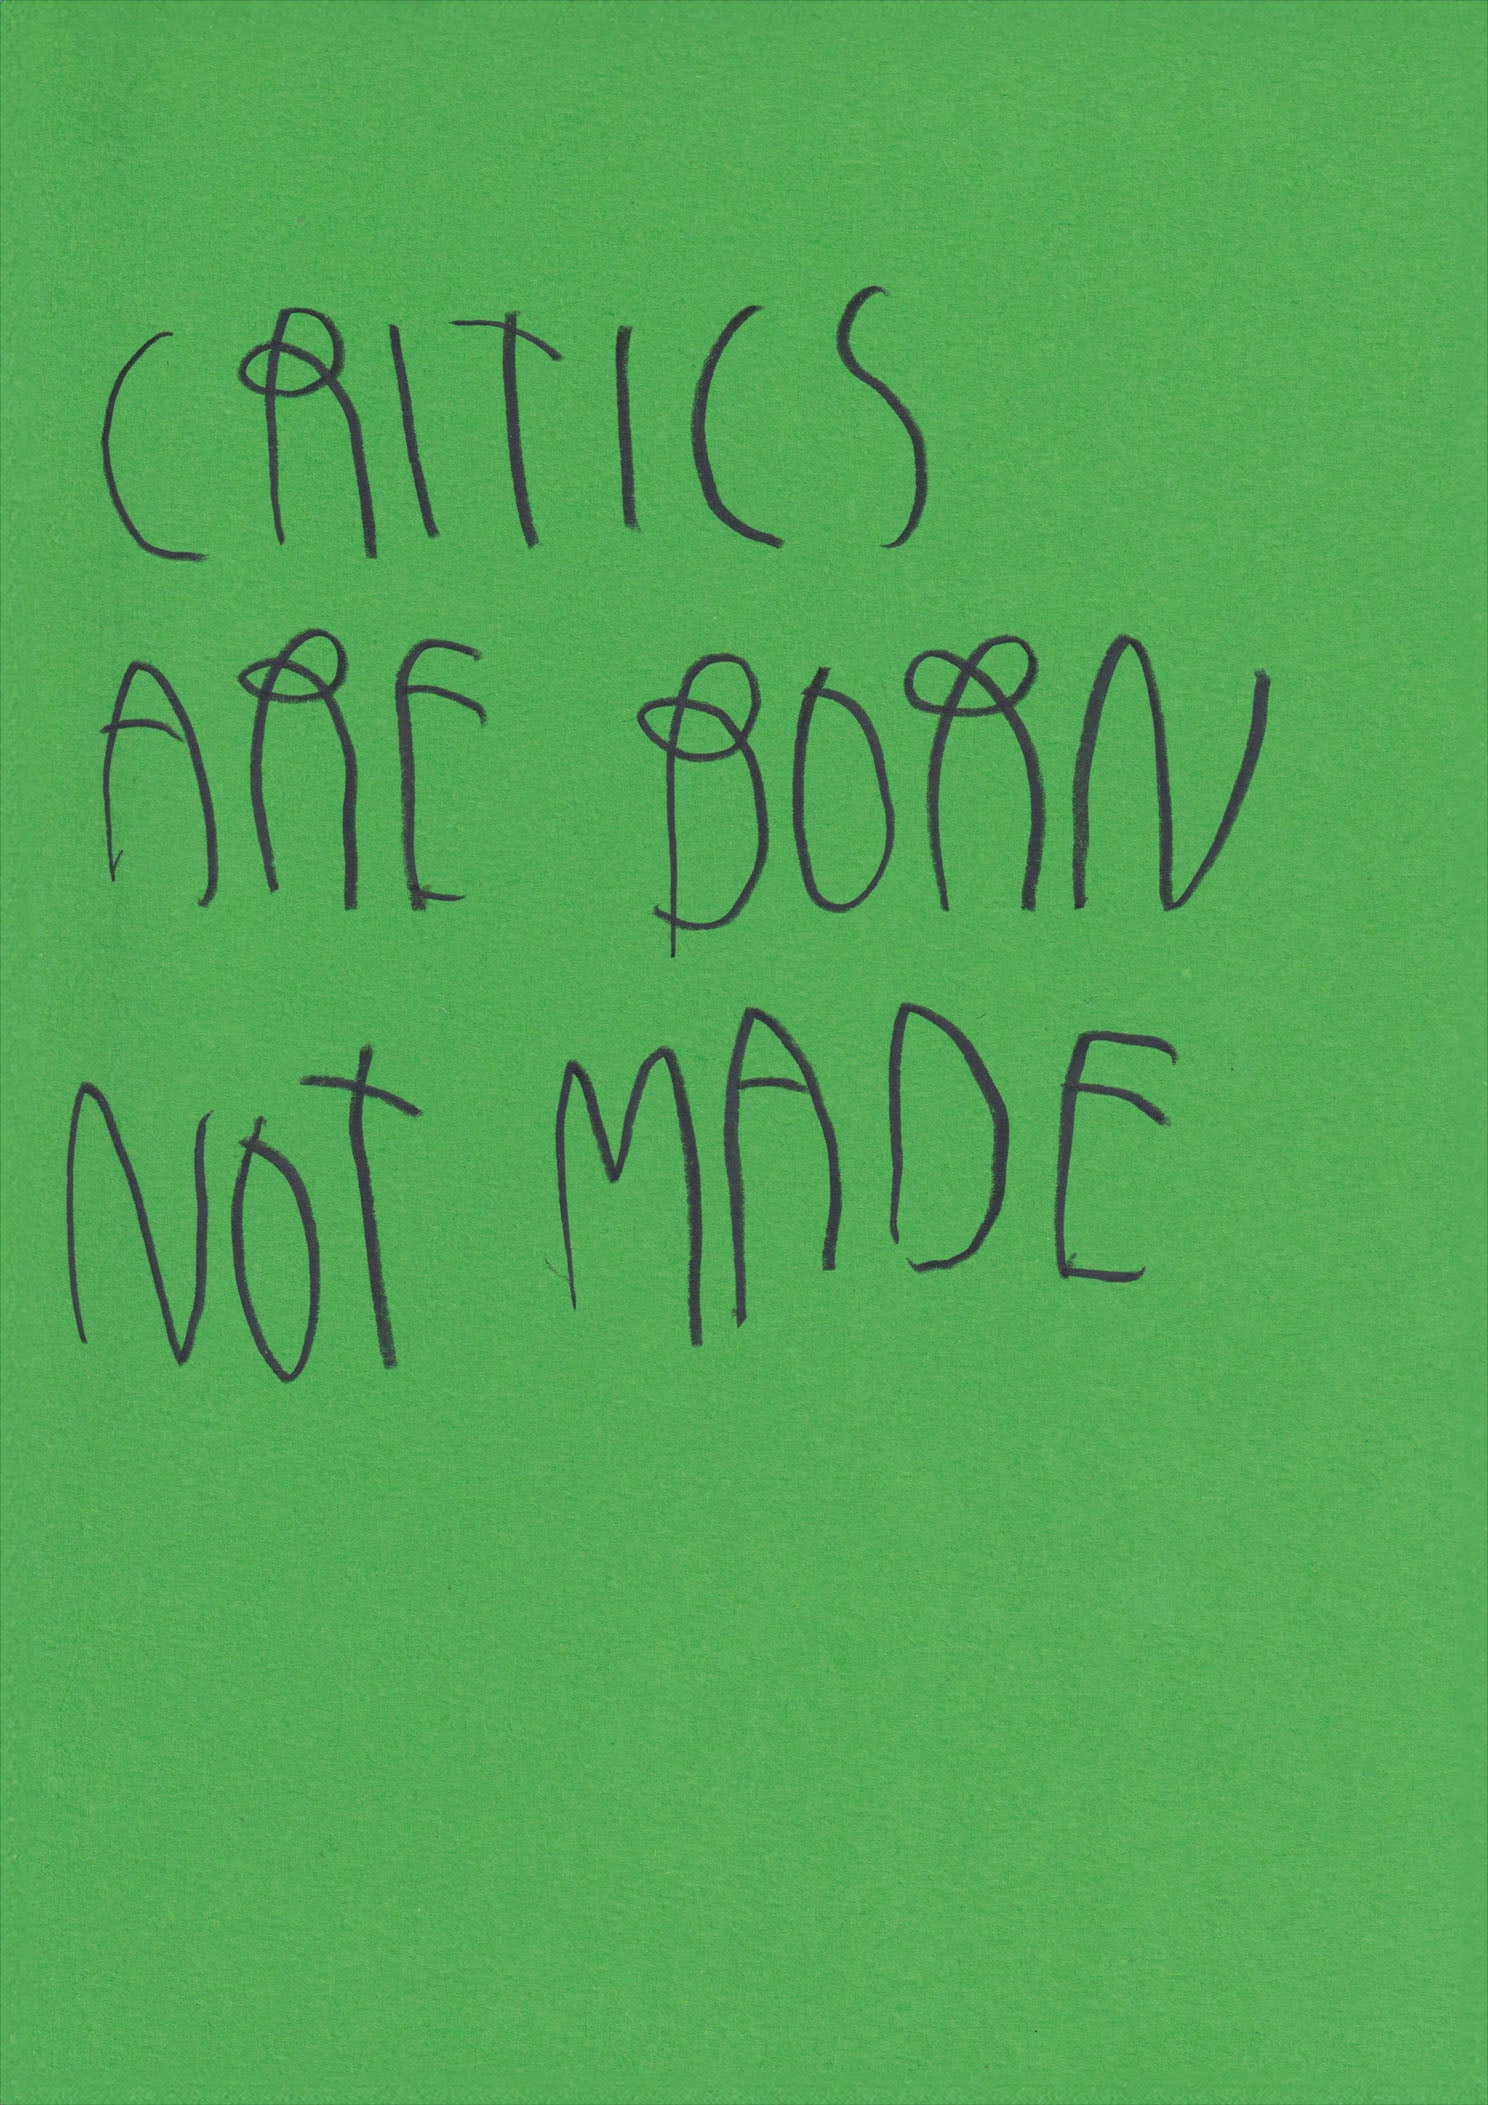 CRITICS
ARE BORN
NOT MADE